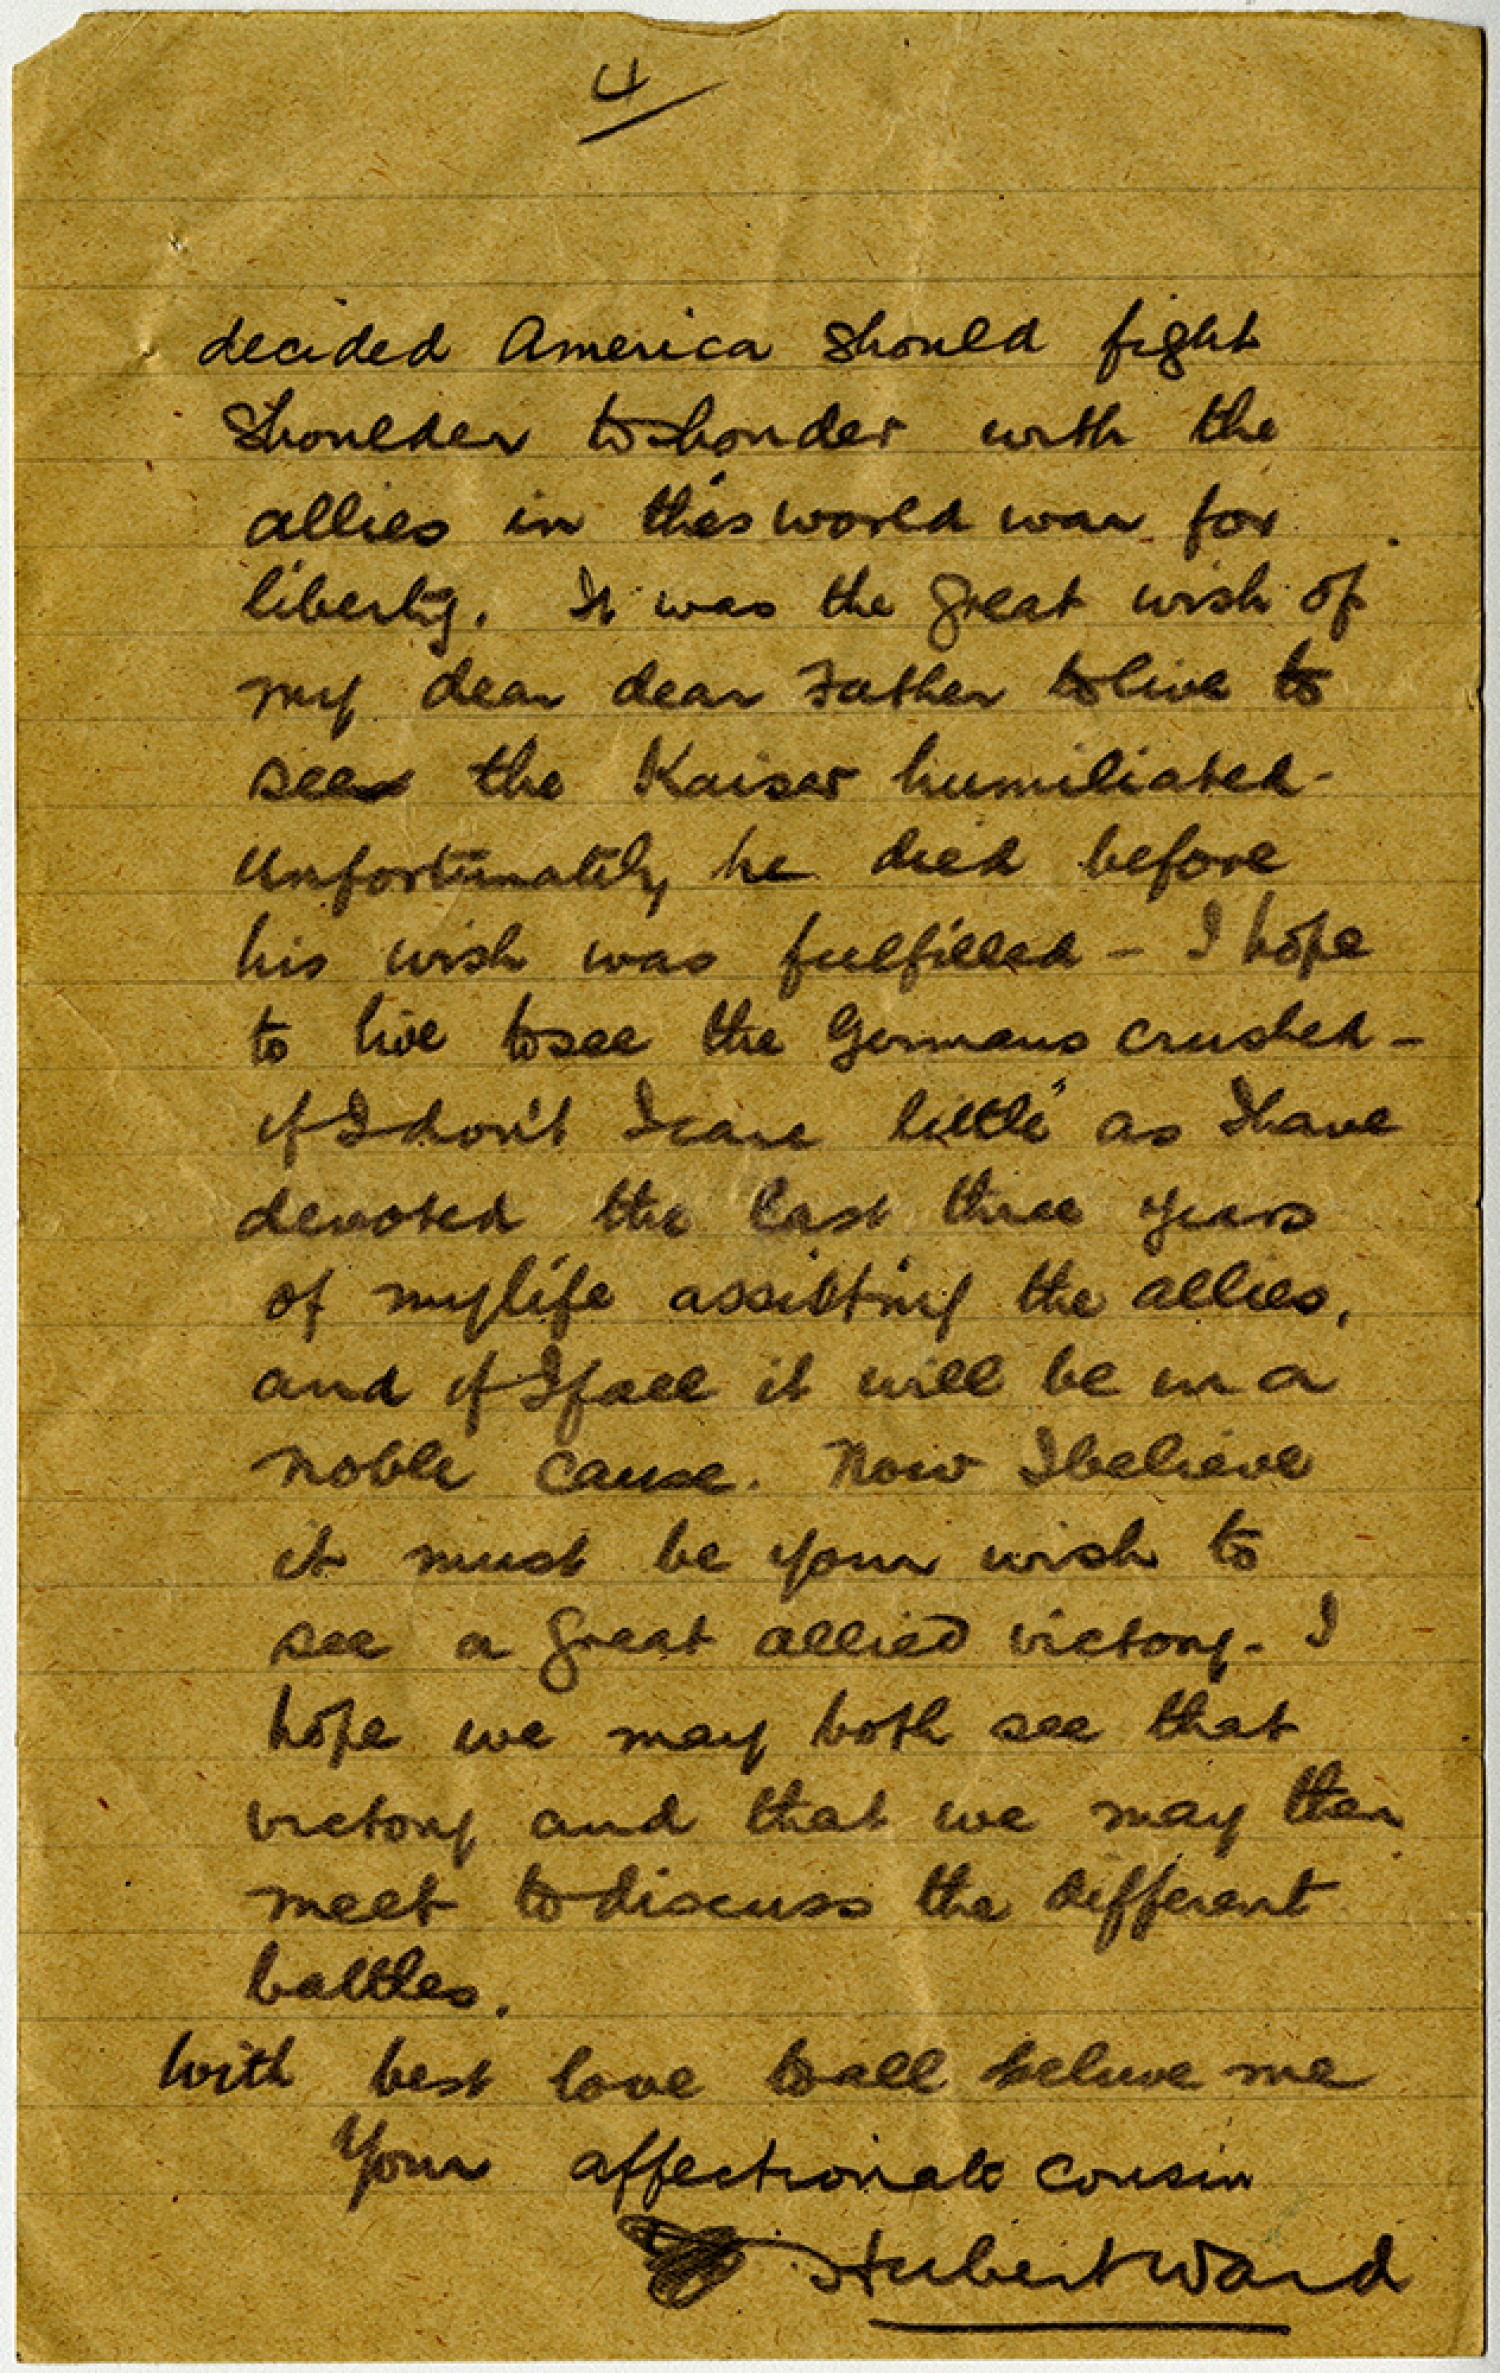 4
decided America should fight
shoulder to shouder with the
allies in this world war for
liberty. It was the great wish of
my dear dear Father to live to
see the Kaiser humiliated -
Unfortunately he died before
his wish was fulfilled - I hope
to live to see the Germans crushed -
if I don't I care little as I have
devoted the last three years
of my life assisting the allies,
and if I fall it will be in a
noble cause. Now I believe
it must be your wish to
see a great allied victory - I
hope we may both see that
victory and that we may then
meet to discuss the different
battles.
With best love to all believe me
Your affectionate cousin
Hubert Ward